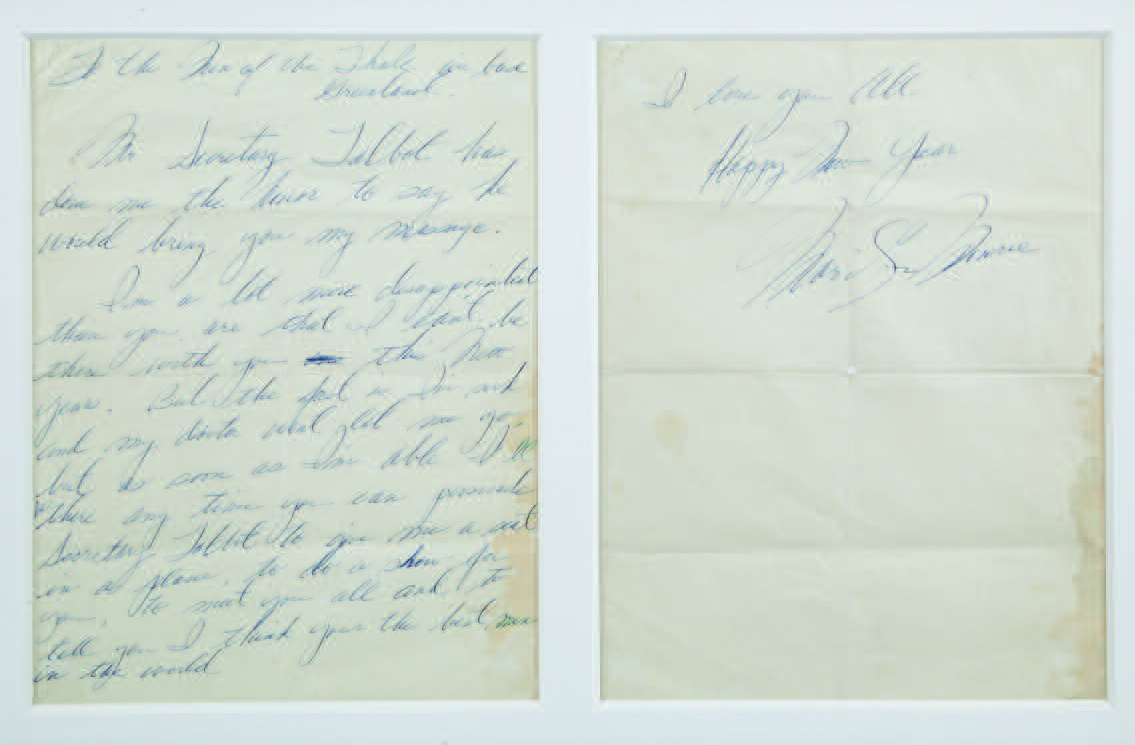 To the Men of the Thule air base
Greenland.
Mr Secretary Talbot has
done me the honor to say he
would bring you my message.
I'm a lot more disappointed
than you are that I can't be
there with you this New
year. But the fact is I'm sick
and my doctor wont let me go,
but as soon as I'm able I'll be
there any time you can persuade
Secretary Talbot to give me a seat
in a plane, to do a show for
you, to meet you all and to
tell you I think your the best men
in the world
I love you All.
Happy New Year
Marilyn Monroe